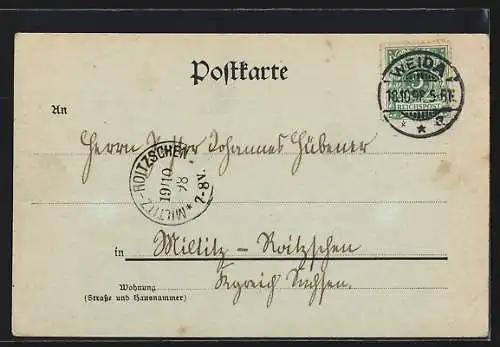 Postkarte
WEIDA
18.10.98. 5-6N.
* * a
REICHSPOST
An
Herrn Johannes Hübener
MILTITZ-ROITZSCHEN
19/10
98
7-8V.
in Miltitz - Roitzschen
Wohnung
(Straße und Hausnummer)
Kgreich Sachsen.